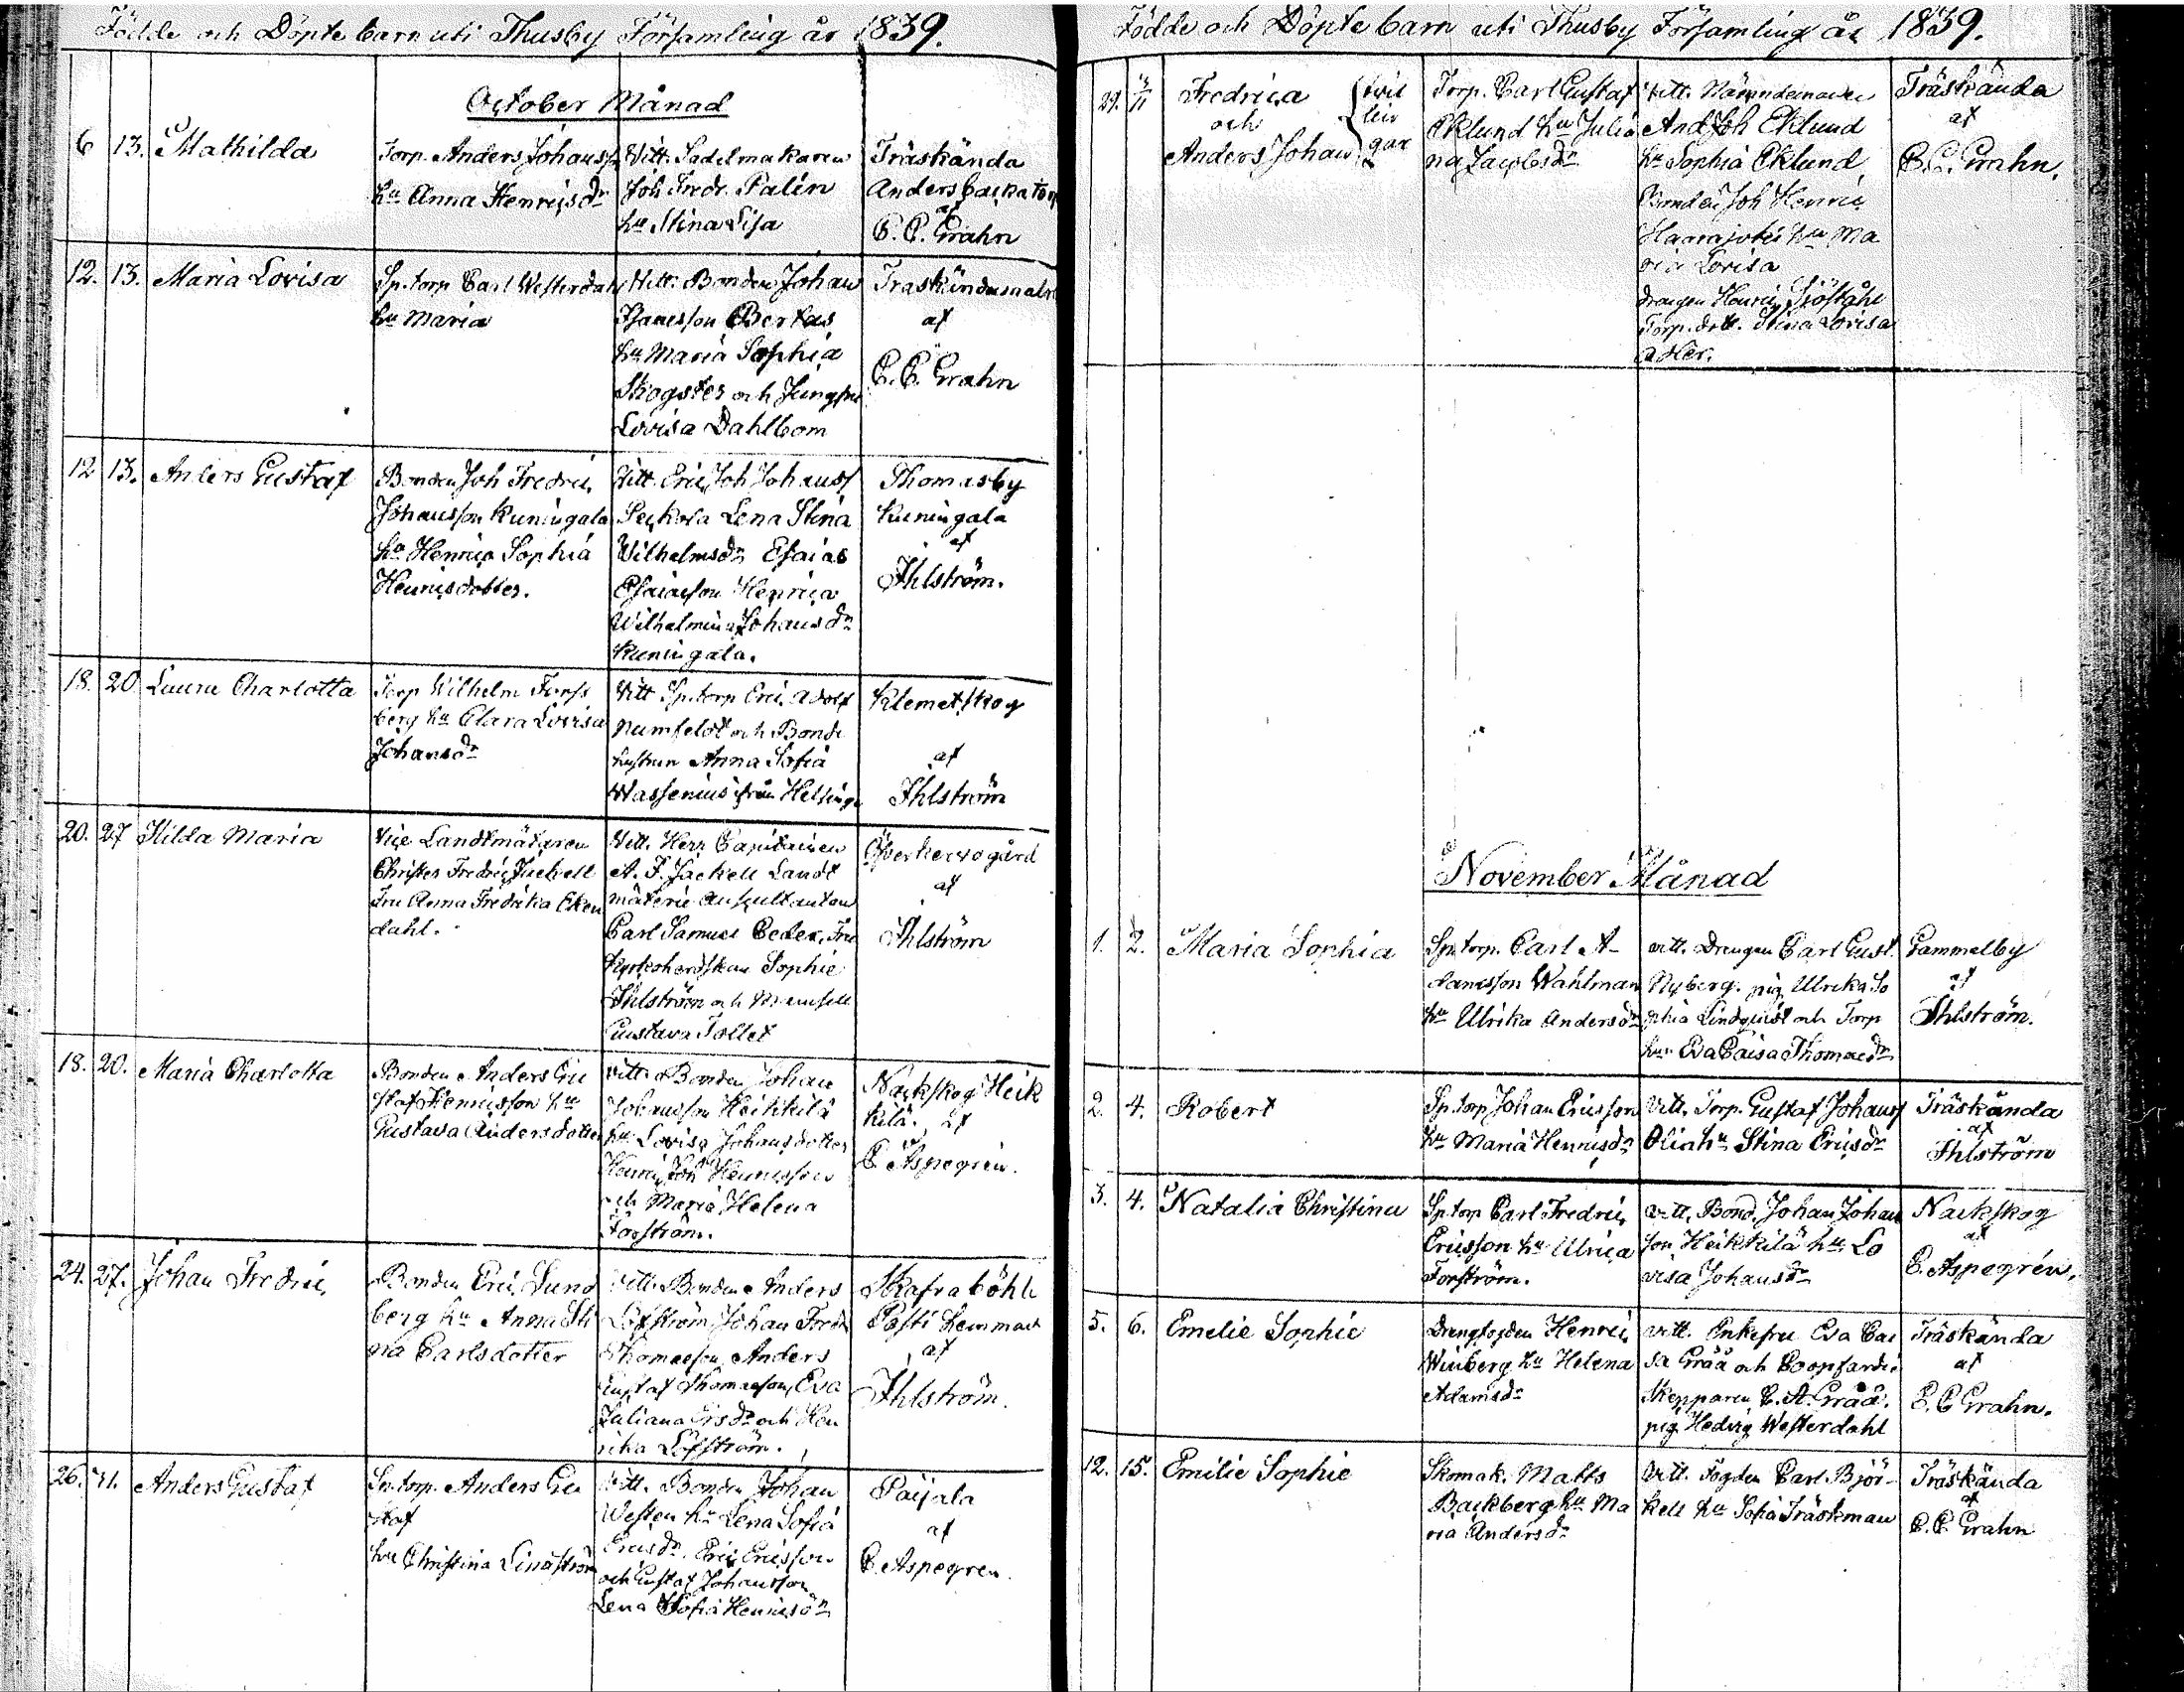 Födde och Döpte barn uti Thusby Församling år 1839.
October Månad
6 13. Mathilda
Torp. Anders Johanss
hu Anna Henricsdr
Vitt. Sadelmakaren
Joh Fredr. Palin
hu Stina Lisa
Träskända
Andersbacka torp
af
C. C. Grahn
12. 13. Maria Lovisa
Sp. torp Carl Westerdahl
hu Maria
Vitt. Bonden Johan
Isacsson Bertas
hu Maria Sophia
Skogster och Jungfru
Lovisa Dahlbom
Träskända
af
C. C. Grahn
12 13. Anders Gustaf
Bonden Joh Fredric
Johansson Kuningala
hu Henrica Sophia
Henricsdotter.
Vitt. Eric Joh Johanss
Lena Stina
Wilhelmsdr Esaias
Esaiasson Henrica
Wilhelmina Johansdr
Kuningala.
Thomasby
Kuningala
af
Ihlström.
18. 20 Laura Charlotta
Torp Wilhelm Forss
berg hu Clara Lovisa
Johansdr
Vitt Sp. torp Eric Adolf
Numfeldt och Bonde
hustrun Anna Sofia
Wassenius ifrån Helsinge
Klemetskog
af
Ihlström
20. 27 Hilda Maria
Vice Landtmätaren
Christer Fredric Jackell
Fru Anna Fredrika Eken
dahl.
Vitt. Herr Capitainen
A. F. Jackell Landt
mäteri Auscultanten
Carl Samuel Ceder, Fru
Kyrkoherdskan Sophie
Ihlström och Mamsell
Gustava Tollet
Öfverkervo gård
af
Ihlström
18. 20. Maria Charlotta
Bonden Anders Gu
staf Henricsson hu
Gustava Andersdotter
Vitt. Bonden Johan
Johansson Heikkilä
hu Lovisa Johansdotter
Henric Joh Henricsson
och Maria Helena
Forström.
Nackskog Heik
kilä. af
C Aspegrén.
24. 27. Johan Fredric
Bonden Eric Lund
berg hu Anna Sti
na Carlsdotter
Vitt. Bonden Anders
Löfström Johan Fredr
Thomasson, Anders
Gustaf Thomasson, Eva
Juliana Ersdr och Hen
rika Löfström.
Skafraböhle
Pasti hemman
af
Ihlström.
26. 31. Anders Gustaf
Sp. torp. Anders Gu
staf
hu Christina Lindström
Vitt. Bonden Johan
Westen hu Lena Sofia
Ericsdr. Eric Ericsson
och Gustaf Johansson
Lena Sofia Henricsdr
Paijala
af
C Aspegren.
Födde och Döpte barn uti Thusby Församling år 1839.
29. 3/11 Fredrica
och
Anders Johan
tvil
lin
gar
Torp. Carl Gustaf
Eklund hu Julia
na Jacobsdr
Vitt. Nämndemannen
And Joh Eklund
hu Sophia Eklund,
Bonden Joh Henric
hu Ma
ria Lovisa
drängen Henric Sjöståhl
Torp. dott. Stina Lovisa
Träskända
af
C. C. Grahn.
November Månad
1. 2. Maria Sophia
Sp. torp. Carl A-
damsson Wahlman
hu Ulrika Andersdr
vitt. Drengen Carl Gust.
Nyberg. pig Ulrika So
phia Lindqvist och Torp
hun Eva Caisa Thomasdr
Gammelby
af
Ihlström.
2. 4. Robert
Sp. torp Johan Ericsson
hu Maria Henricsdr
Vitt. Torp. Gustaf Johanss
hu Stina Ericsdr
Träskända
af
Ihlström
3. 4. Natalia Christina
Sp torp Carl Fredric
Ericsson hu Ulrica
Forström.
Vitt. Bond. Johan Johans
son Heikkilä hu Lo
visa Johansdr
Nackskog
af
C. Aspegrén.
5. 6. Emelie Sophie
Drengfogden Henric
Winberg hu Helena
Adamsdr
Vitt. Enkefru Eva Cai
sa Gråå och Coopfardie
Skepparen C. A. Gråå.
pig Hedvig Westerdahl
Träskända
af
C. C Grahn.
12. 15. Emilie Sophie
Skomak. Matts
Backberg hu Ma
ria Andersdr
Vitt. Fogden Carl Björ-
kell hu Sofia Träskman
Träskända
af
C. C. Grahn